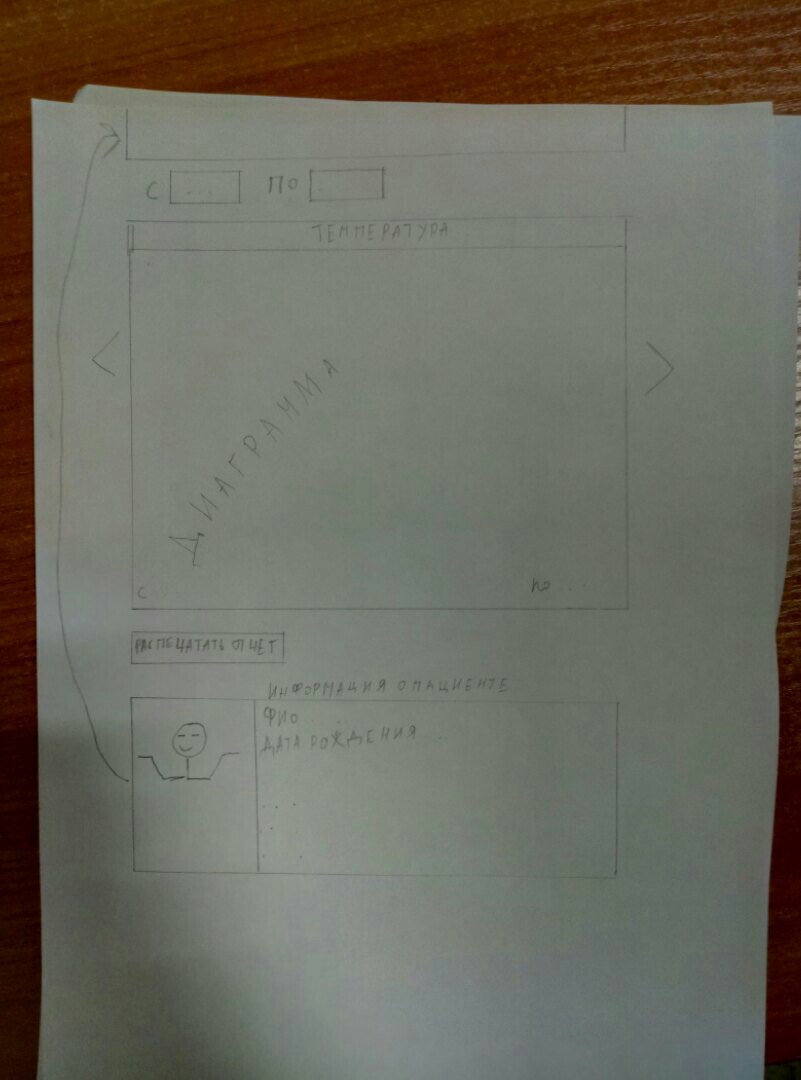 С ... ПО
ТЕМПЕРАТУРА
ДИАГРАММА
С... по ...
РАСПЕЧАТАТЬ ОТЧЕТ
ИНФОРМАЦИЯ О ПАЦИЕНТЕ
ФИО ...
ДАТА РОЖДЕНИЯ ...